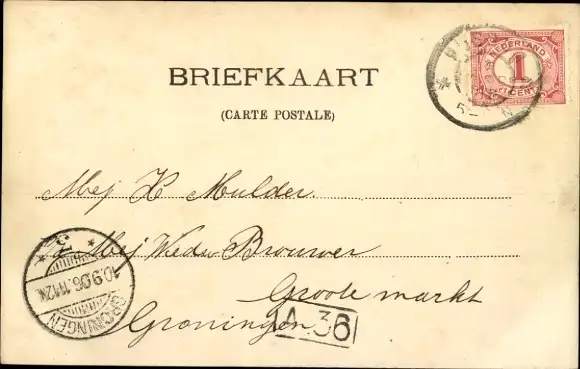 NEDERLAND
1
CENT
BRIEFKAART
(CARTE POSTALE)
Mej H Mulder.
Mej Wedw Brouwer
Groote markt
Groningen
A 36
3
10.9.06.11-12V.
GRONINGEN